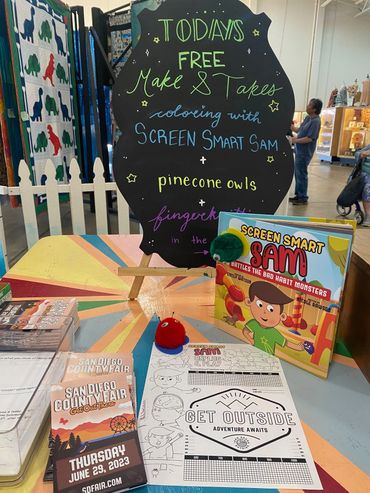 TODAYS
FREE
Make & Takes
coloring with
SCREEN SMART SAM
+
pinecone owls
+
in the
SCREEN SMART
SAM
BATTLES THE BAD HABIT MONSTERS
SCREEN SMART
SAM
GET OUTSIDE
ADVENTURE AWAITS
SAN DIEGO
COUNTY FAIR
SAN DIEGO
COUNTY FAIR
Get Out There
THURSDAY
JUNE 29, 2023
SDFAIR.COM